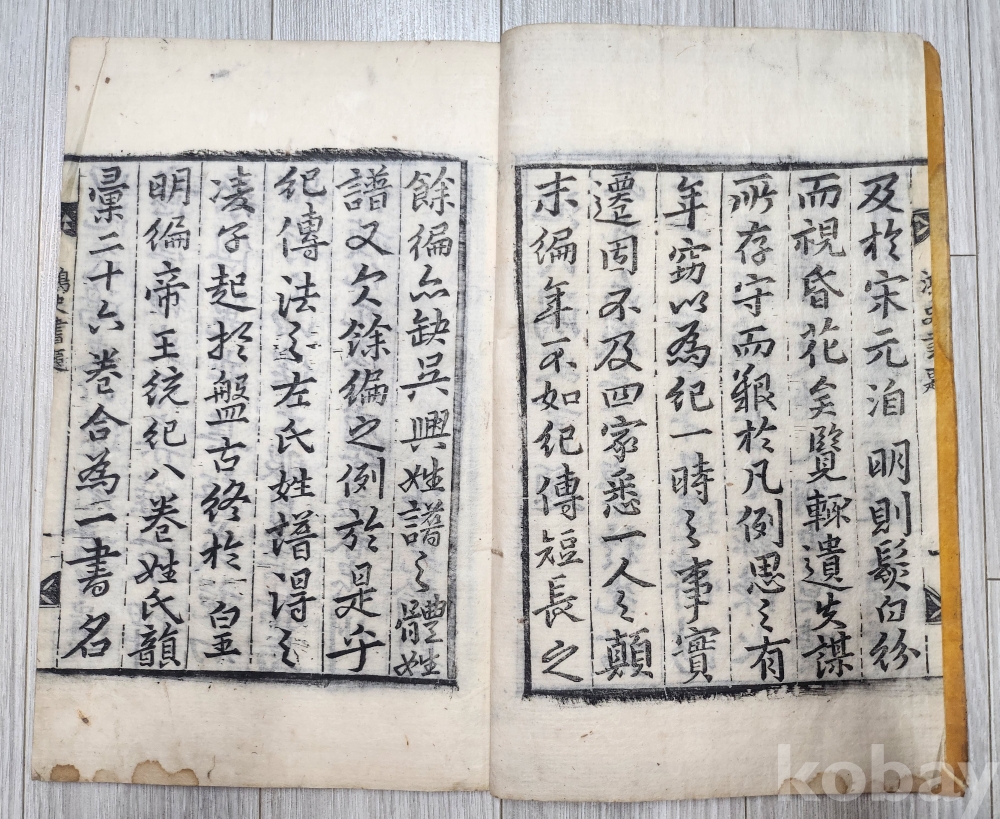 及於宋元洎 明則鬂白紛
而視昏花矣覽輒遺失謀
所存守而艱於凡例思之有
年窃以為紀一時之事實
遷固不及四家悉一人之顛
末編年不如紀傳短長之
餘編亦缺吳興姓譜之體姓
譜又欠餘編之例於是乎
紀傳法之左氏姓譜淂之
凌子起於盤古終於 皇
明編帝王統紀八卷姓氏韻
彙二十六卷合為一書名
鴻史書題
kobay